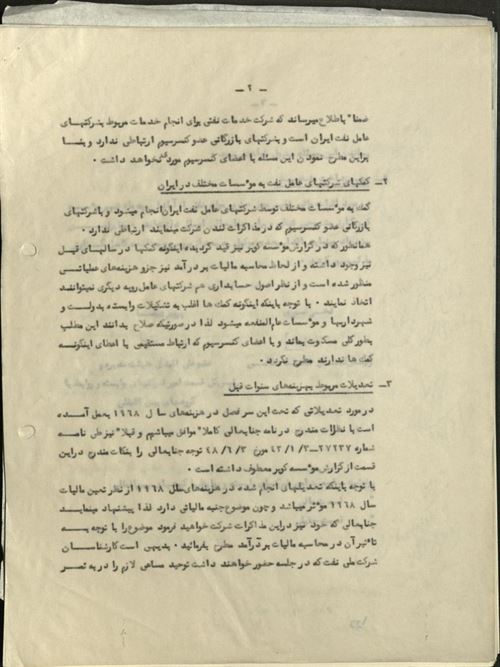 - ۲ -
ضمنا" باطلاع میرساند که شرکت خدمات نفتی برای انجام خدمات مربوط بشرکتهای
عامل نفت ایران است و بشرکتهای بازرگانی عضو کنسرسیوم ارتباطی ندارد و بنا
براین مطرح نمودن این مسئله با اعضای کنسرسیوم مورد نخواهد داشت .
۲- کمکهای شرکتهای عامل نفت به مؤسسات مختلف در ایران
کمک به مؤسسات مختلف توسط شرکتهای عامل نفت ایران انجام میشود و باشرکتهای
بازرگانی عضو کنسرسیوم که در مذاکرات لندن شرکت مینمایند ارتباطی ندارد .
همانطور که در گزارش مؤسسه کوپر نیز قید گردیده اینگونه کمکها در سالهای قبل
نیز وجود داشته و از لحاظ محاسبه مالیات بر درآمد نیز جزو هزینه‌های عملیاتی
منظور شده است و از نظر اصول حسابداری هم شرکتهای عامل رویه دیگری نمیتوانند
اتخاذ نمایند . با توجه باینکه اینگونه کمک ها اغلب به تشکیلات وابسته بدولت و
شهرداریها و مؤسسات عام‌المنفعه میشود لذا در صورتیکه صلاح بدانند این مطلب
بطور کلی مسکوت بماند و با اعضای کنسرسیوم که ارتباط مستقیمی با اعطای اینگونه
کمک ها ندارند مطرح نگردد .
۳- تعدیلات مربوط بهزینه‌های سنوات قبل
در مورد تعدیلاتی که تحت این سر فصل در هزینه‌های سال ۱۹۶۸ بعمل آمده
است با نظرات مندرج در نامه جنابعالی کاملا" موافق میباشیم و قبلا" نیز طی نامه
شماره ۲۷۲۳۷-۴۲/۱/۳ مورخ ۴۸/۶/۳ توجه جنابعالی را بنکات مندرج در این
قسمت از گزارش مؤسسه کوپر معطوف داشته است .
با توجه باینکه تعدیلهای انجام شده در هزینه‌های سال ۱۹۶۸ از نظر تعین مالیات
سال ۱۹۶۸ مؤثر میباشد و چون موضوع جنبه مالیاتی دارد لذا پیشنهاد مینماید
جنابعالی که خود نیز در این مذاکرات شرکت خواهید فرمود موضوع را با توجه به
تاثیر آن در محاسبه مالیات بر درآمد مطرح بفرمائید . بدیهی است کارشناسان
شرکت ملی نفت که در جلسه حضور خواهند داشت توحید مساعی لازم را در به ثمر